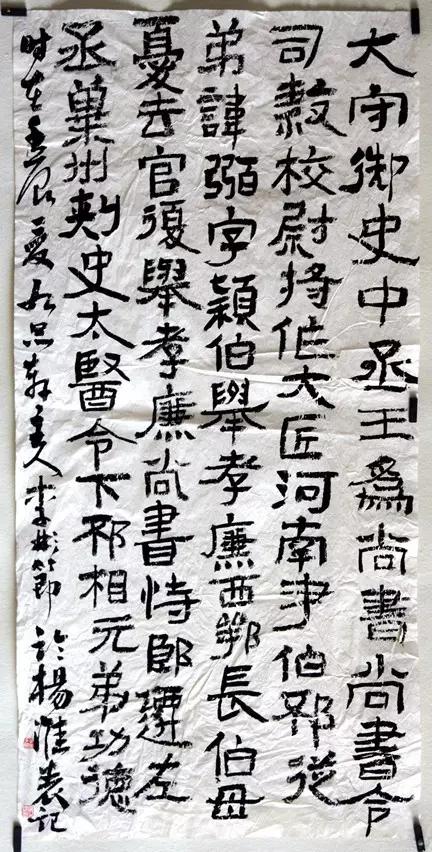 大守御史中丞王爲尚書尚書令
司隸校尉將作大匠河南尹伯邳從
弟諱弼字穎伯舉孝廉西鄂長伯母
憂去官復舉孝廉尚書恃郎遷左
丞冀州刺史太醫令下邳相元弟功德
时在壬辰夏品軒主人李彬節於楊淮表記